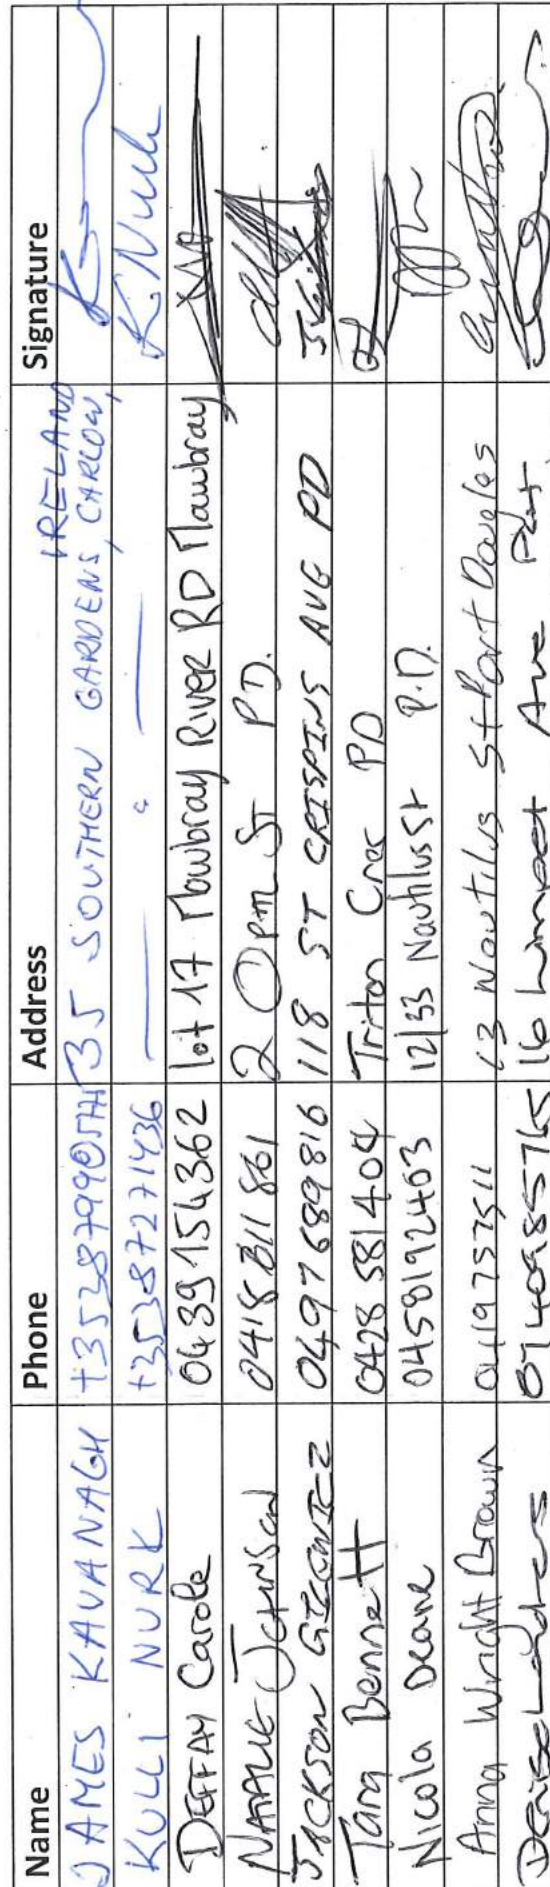 Name Phone Address Signature
JAMES KAVANAGH 35 SOUTHERN GARDENS, CARLOW, IRELAND
KULLI NURK +353872271436 " K Nurk
DEFFAY Carole 0439154362 lot 17 Mowbray River RD Mowbray
NATALIE JOHNSON 0418 811 861 2 Opm St P.D.
JACKSON 0497689816 118 ST CRISPINS AVE PD
Tara Bennett 0428 581 404 Triton Cres PD
Nicola Deane 0458192403 12/33 Nautilus St P.D.
Anna Wright Brown 0419757511 13 Nautilus St Port Douglas
Denise 0740985765 16 Limpet Ave Port